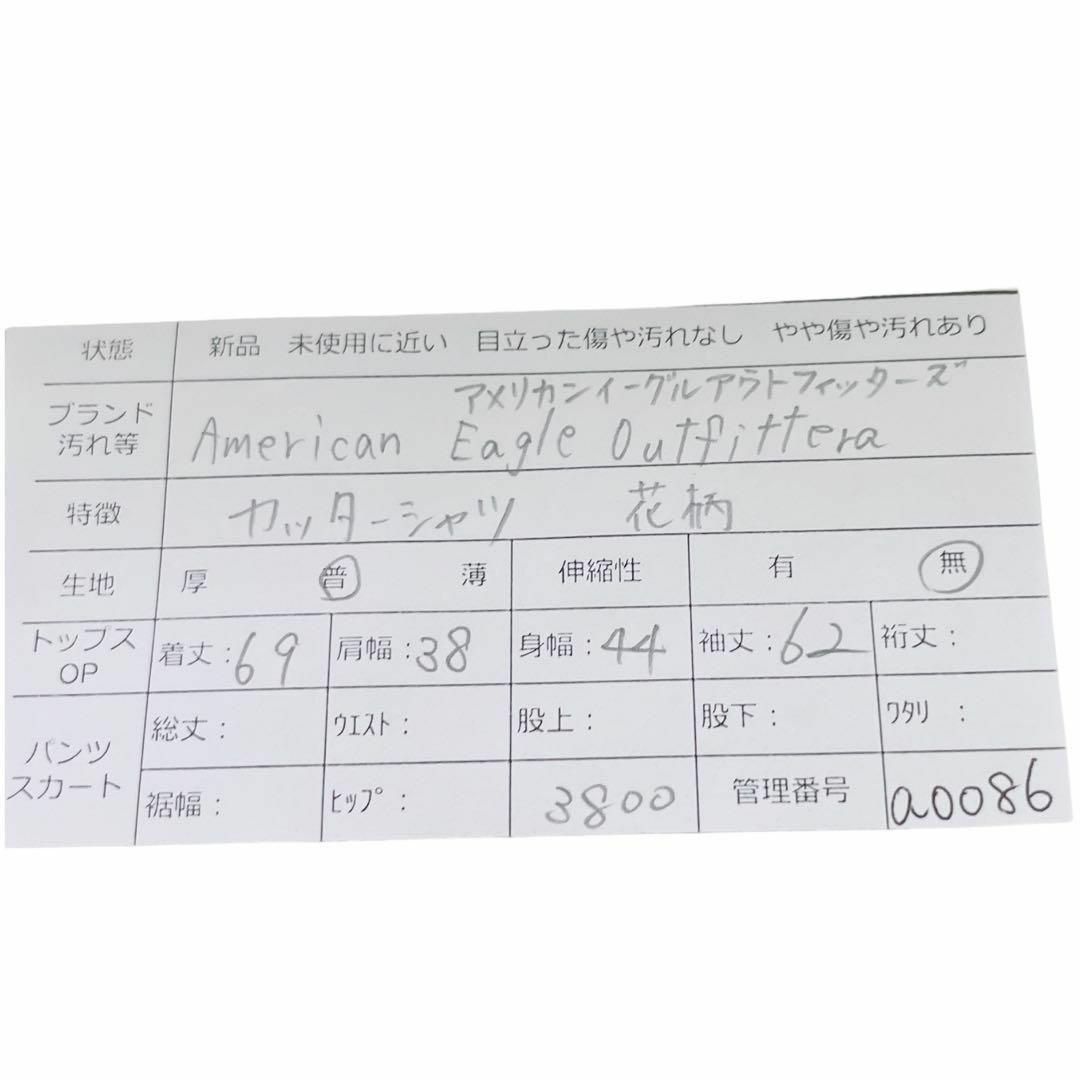 状態 新品 未使用に近い 目立った傷や汚れなし やや傷や汚れあり
ブランド アメリカンイーグルアウトフィッターズ
汚れ等 American Eagle Outfittera
特徴 カッターシャツ 花柄
生地 厚 普 薄 伸縮性 有 無
トップス OP 着丈:69 肩幅:38 身幅:44 袖丈:62 裄丈:
パンツ スカート 総丈: ウエスト: 股上: 股下: ワタリ :
裾幅: ヒップ: 3800 管理番号 a0086